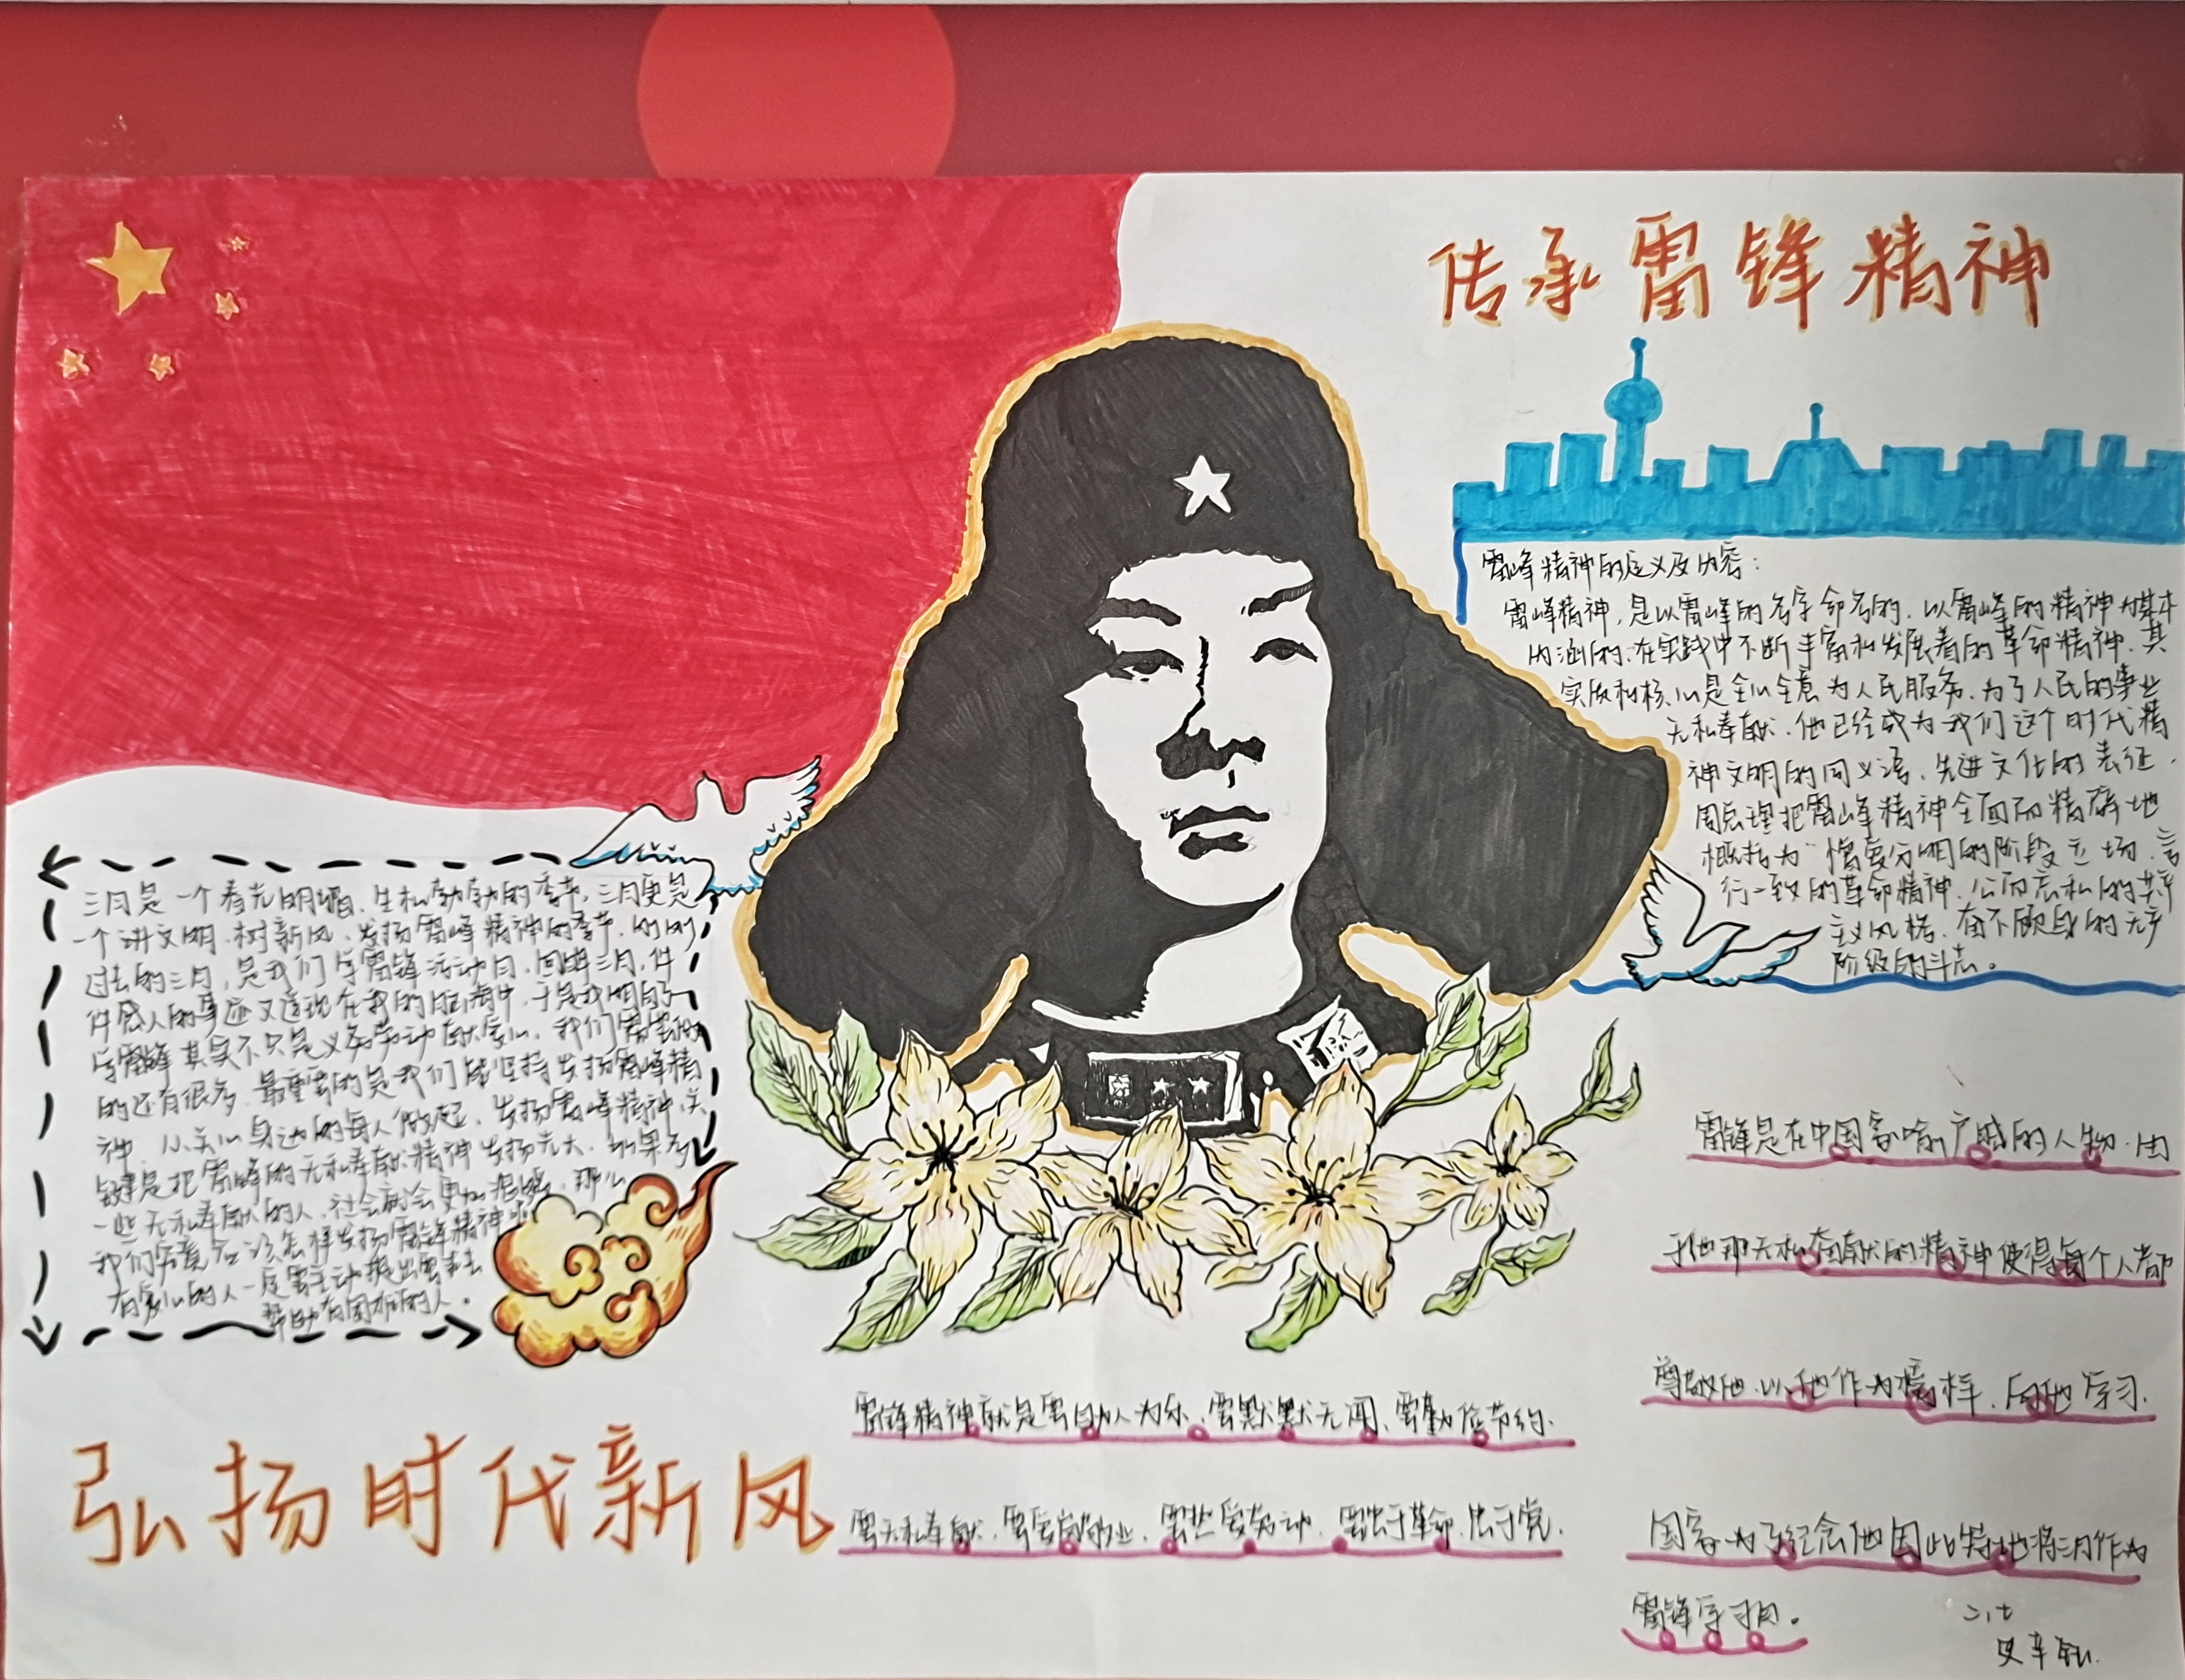 传承雷锋精神
雷峰精神的定义及内容：
雷峰精神，是以雷峰的名字命名的，以雷峰的精神为基本
内涵的、在实践中不断丰富和发展着的革命精神，其
实质和核心是全心全意为人民服务，为了人民的事业
无私奉献，他已经成为我们这个时代精
神文明的同义语、先进文化的表征，
周总理把雷峰精神全面而精辟地
概括为“憎爱分明的阶段立场、言
行一致的革命精神、公而忘私的共产
主义风格、奋不顾身的无产
阶级的斗志。
三月是一个春光明媚、生机勃勃的季节，三月更是
一个讲文明、树新风、发扬雷峰精神的季节，刚刚
过去的三月，是我们学雷锋活动月，回眸三月，件
件感人的事迹又浮现在我的脑海中，于是我明白了
学雷峰其实不只是义务劳动献爱心，我们需要做
的还有很多，最重要的是我们能坚持发扬雷峰精
神，从关心身边的每人做起，发扬雷峰精神，关
键是把雷峰的无私奉献精神发扬光大，如果多
一些无私奉献的人，社会就会更加温暖，那么
我们究竟应该怎样发扬雷锋精神
有爱心的人一定要主动
帮助有困难的人。
弘扬时代新风
雷锋精神就是要助人为乐、要默默无闻、要勤俭节约、
要无私奉献、要爱岗敬业、要热爱劳动、要忠于革命、忠于党。
雷锋是在中国家喻户喊的人物，由
于他那无私奋献的精神使得每个人都
尊敬他，以他作为榜样，向他学习。
国家为了纪念他因此特地将三月作为
雷锋学习月。